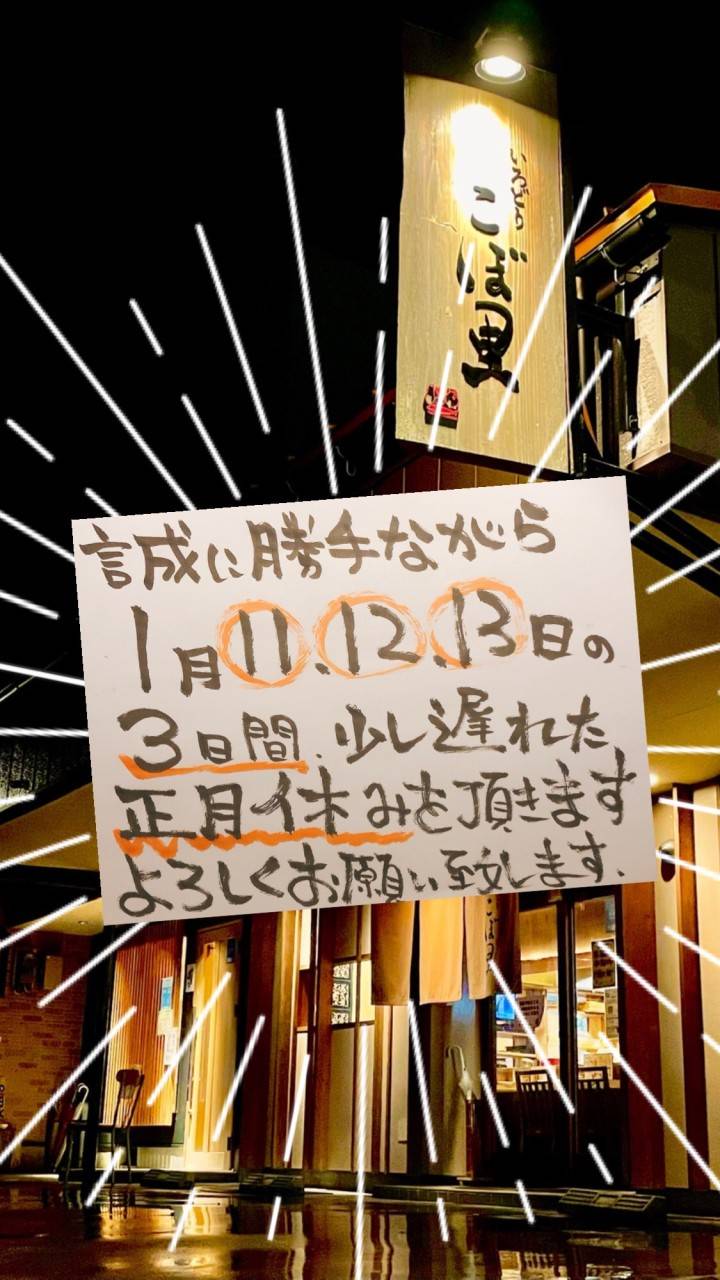 いろどり
こぼ里
誠に勝手ながら
1月11.12.13日の
3日間.少し遅れた
正月休みを頂きます
よろしくお願い致します.
こぼ里